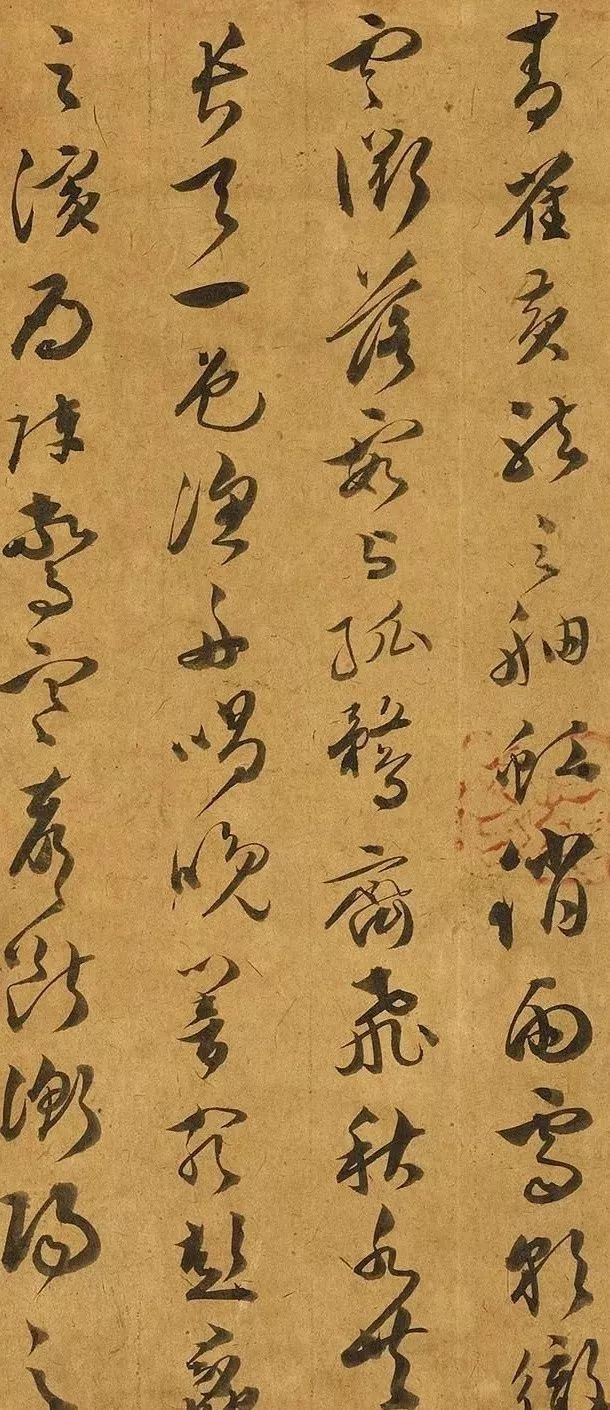 青雀黄龍之舳虹消雨霽彩徹
雲衢落霞与孤鶩齊飛秋水共
長天一色漁舟唱晚響窮彭蠡
之濱雁陣驚寒聲断衡陽之